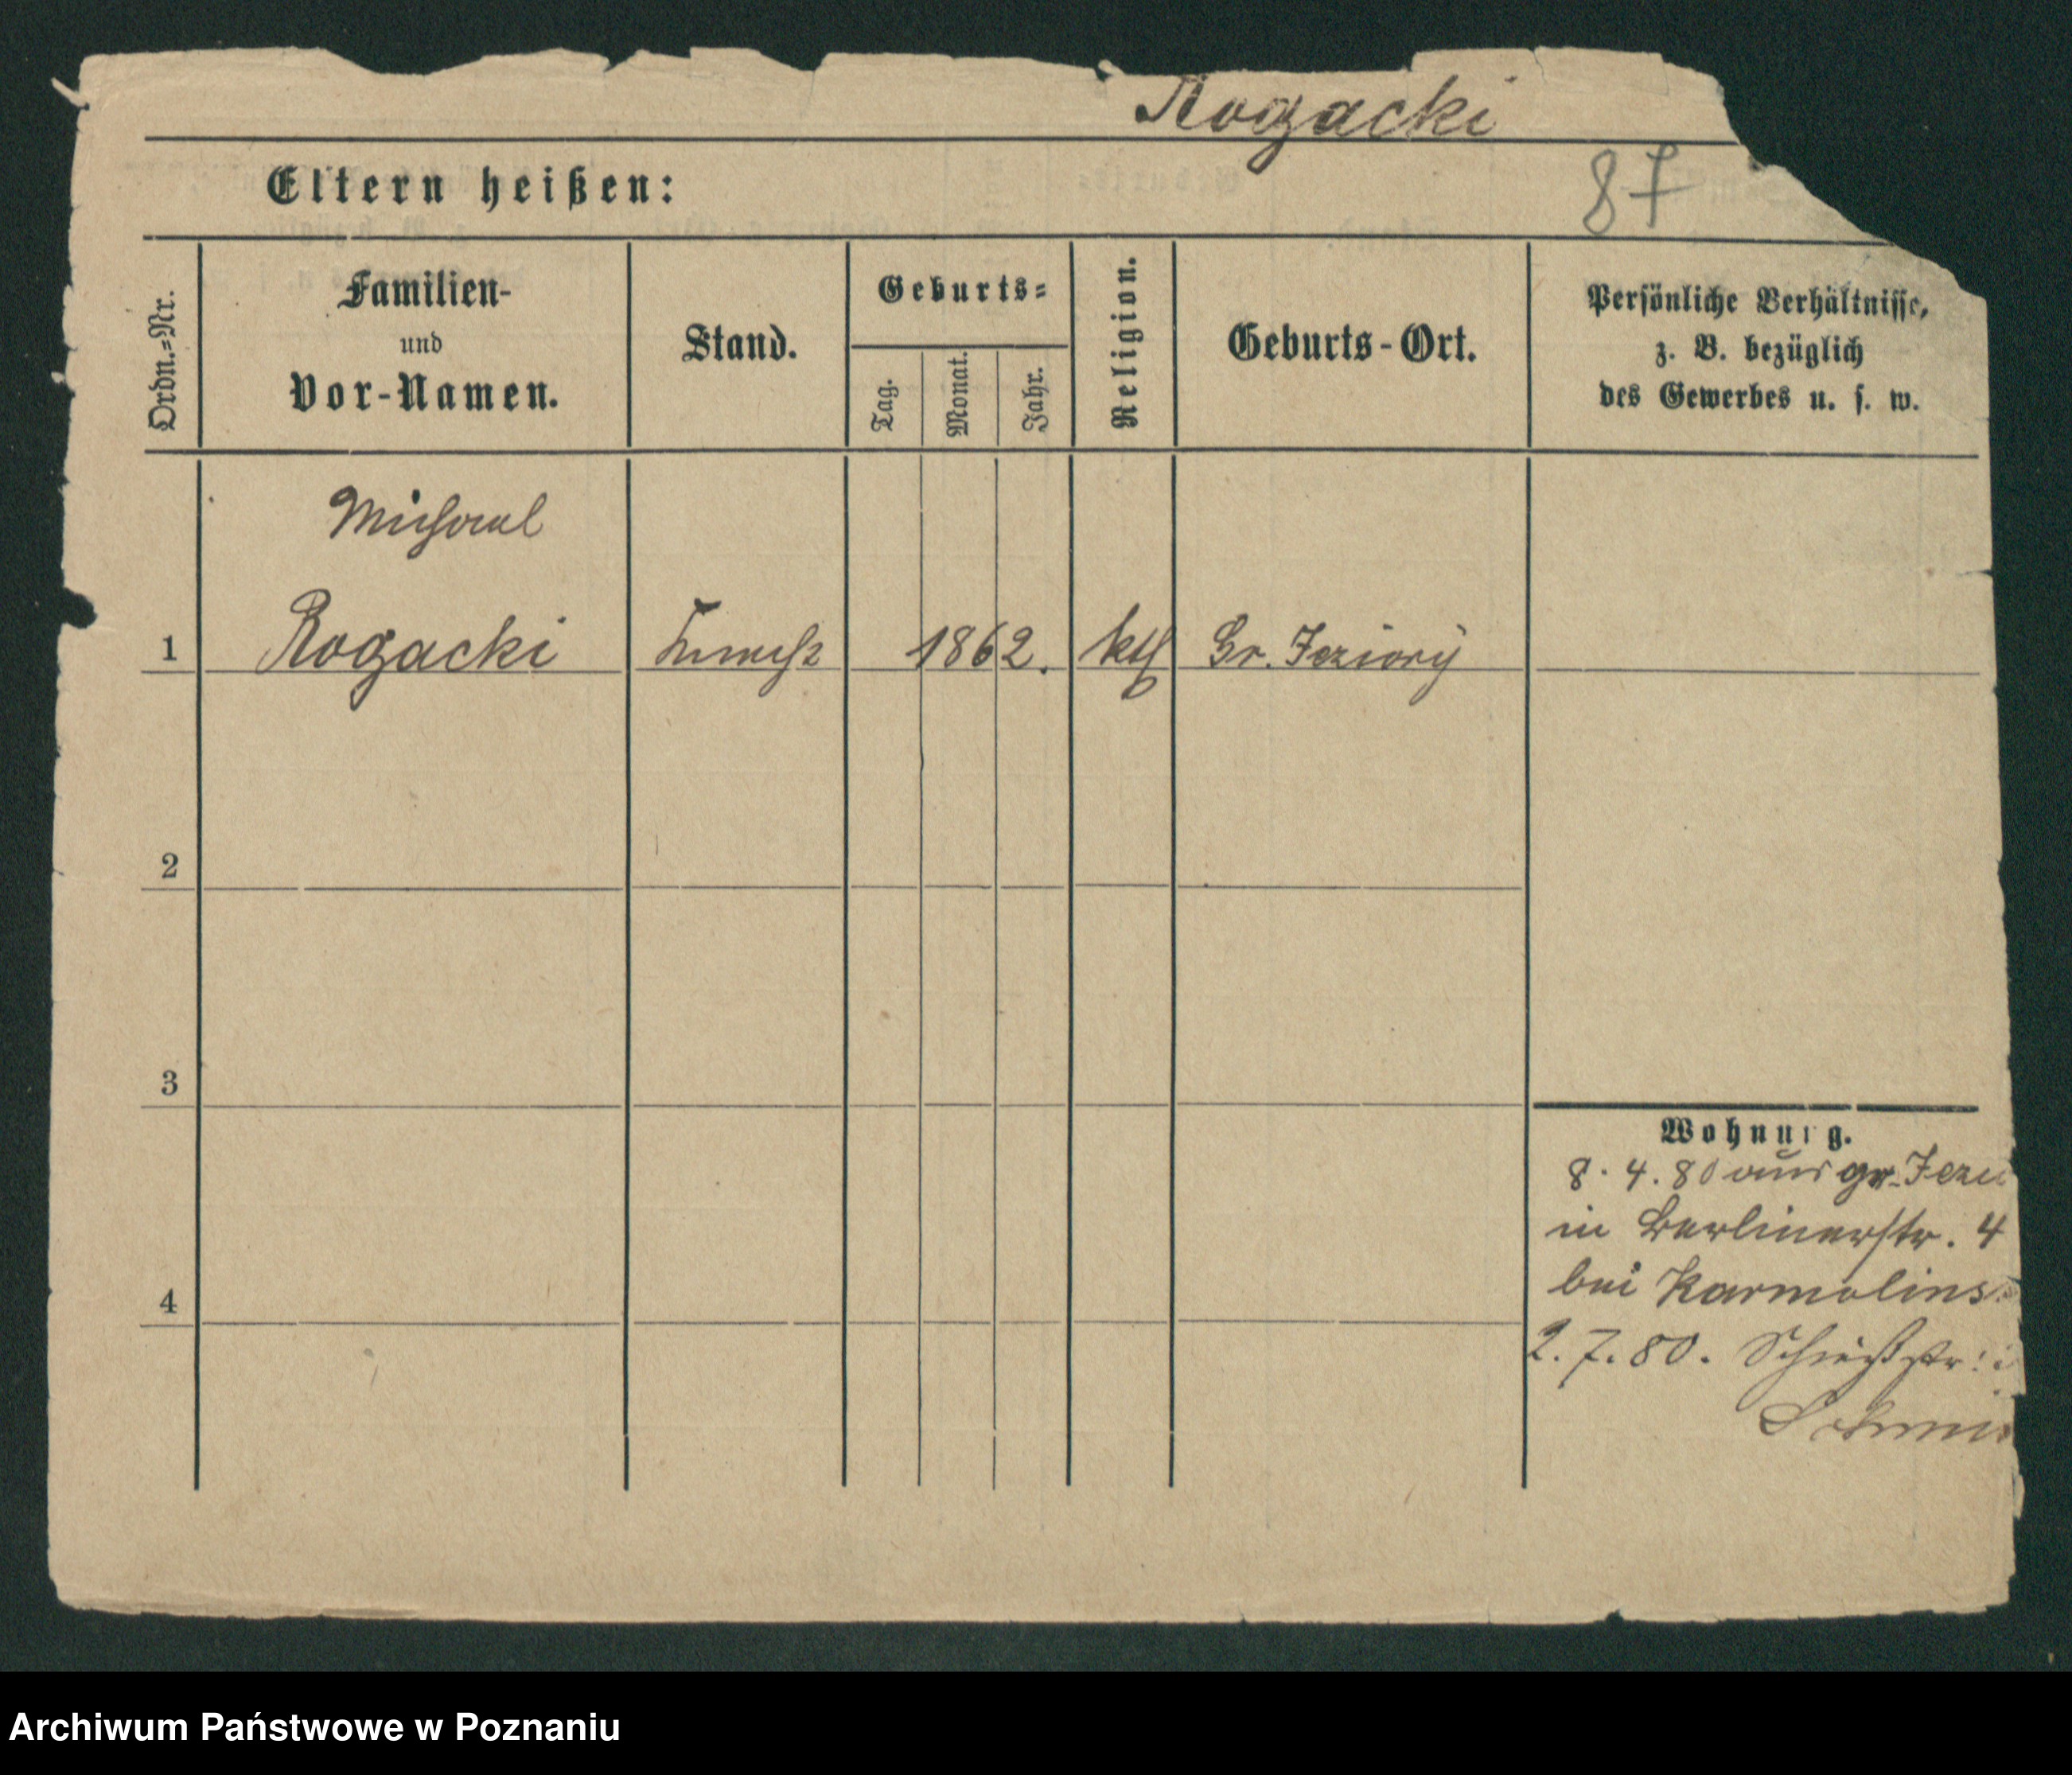 Rogacki
87
Eltern heißen:
Ordn.=Nr.
Familien-
und
Vor-Namen.
Stand.
Geburts=
Tag.
Monat.
Jahr.
Religion.
Geburts-Ort.
Persönliche Verhältnisse,
z. B. bezüglich
des Gewerbes u. s. w.
Michael
1 Rogacki 1862. kth Gr. Jeziory
2
3
4
Wohnung.
8. 4. 80 aus gr. Jezi
in Berlinerstr. 4
bei Karmolins
2. 7. 80. Schießstr.
Archiwum Państwowe w Poznaniu